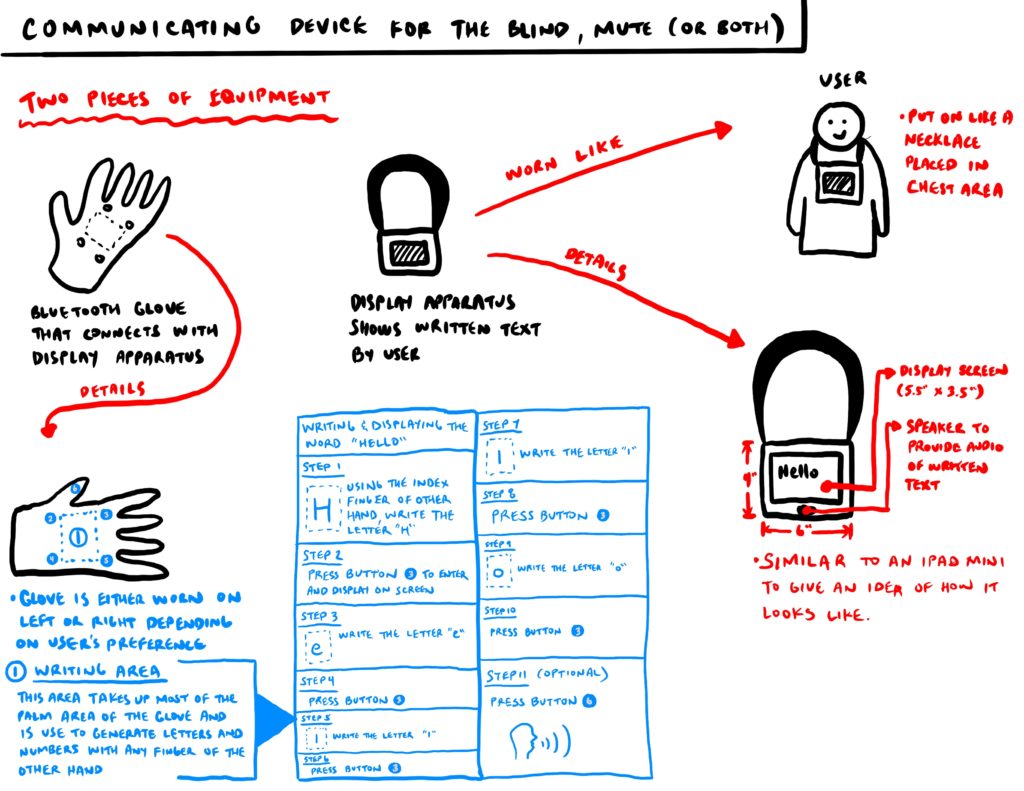 COMMUNICATING DEVICE FOR THE BLIND, MUTE (OR BOTH)
TWO PIECES OF EQUIPMENT
BLUETOOTH GLOVE
THAT CONNECTS WITH
DISPLAY APPARATUS
DETAILS
DISPLAY APPARATUS
SHOWS WRITTEN TEXT
BY USER
WORN LIKE
DETAILS
USER
• PUT ON LIKE A
NECKLACE
PLACED IN
CHEST AREA
DISPLAY SCREEN
(5.5" x 3.5")
SPEAKER TO
PROVIDE AUDIO
OF WRITTEN
TEXT
Hello
9"
6"
• SIMILAR TO AN IPAD MINI
TO GIVE AN IDEA OF HOW IT
LOOKS LIKE.
6
2
3
1
4
5
• GLOVE IS EITHER WORN ON
LEFT OR RIGHT DEPENDING
ON USER'S PREFERENCE
1 WRITING AREA
THIS AREA TAKES UP MOST OF THE
PALM AREA OF THE GLOVE AND
IS USE TO GENERATE LETTERS AND
NUMBERS WITH ANY FINGER OF THE
OTHER HAND
WRITING & DISPLAYING THE
WORD "HELLO"
STEP 1
H
USING THE INDEX
FINGER OF OTHER
HAND, WRITE THE
LETTER "H"
STEP 2
PRESS BUTTON 3 TO ENTER
AND DISPLAY ON SCREEN
STEP 3
e WRITE THE LETTER "e"
STEP 4
PRESS BUTTON 3
STEP 5
l WRITE THE LETTER "l"
STEP 6
PRESS BUTTON 3
STEP 7
l WRITE THE LETTER "l"
STEP 8
PRESS BUTTON 3
STEP 9
o WRITE THE LETTER "o"
STEP 10
PRESS BUTTON 3
STEP 11 (OPTIONAL)
PRESS BUTTON 6